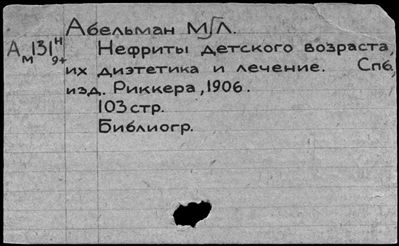 Абельман М.Л.
А м 131 н 9+ Нефриты детского возраста,
их диэтетика и лечение. Спб,
изд. Риккера, 1906.
103 стр.
Библиогр.